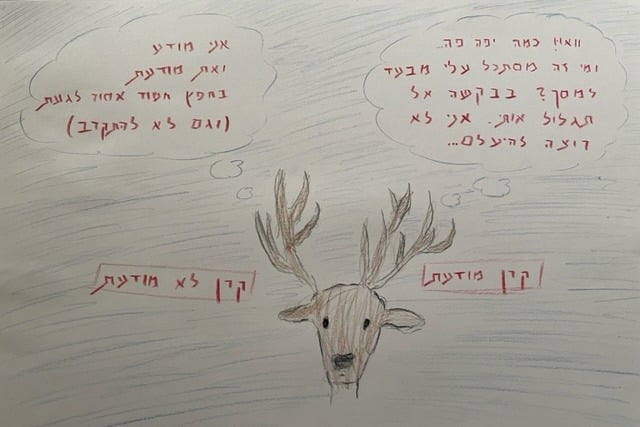 וואו! כמה יפה פה..
ומי זה מסתכל עלי מבעד
למסך? בבקשה אל
תגלול אותי. אני לא
רוצה להיעלם...
אני מודע
ואת מודעת
בחפץ חשוד אסור לגעת
(וגם לא להתקרב)
קרן מודעת
קרן לא מודעת